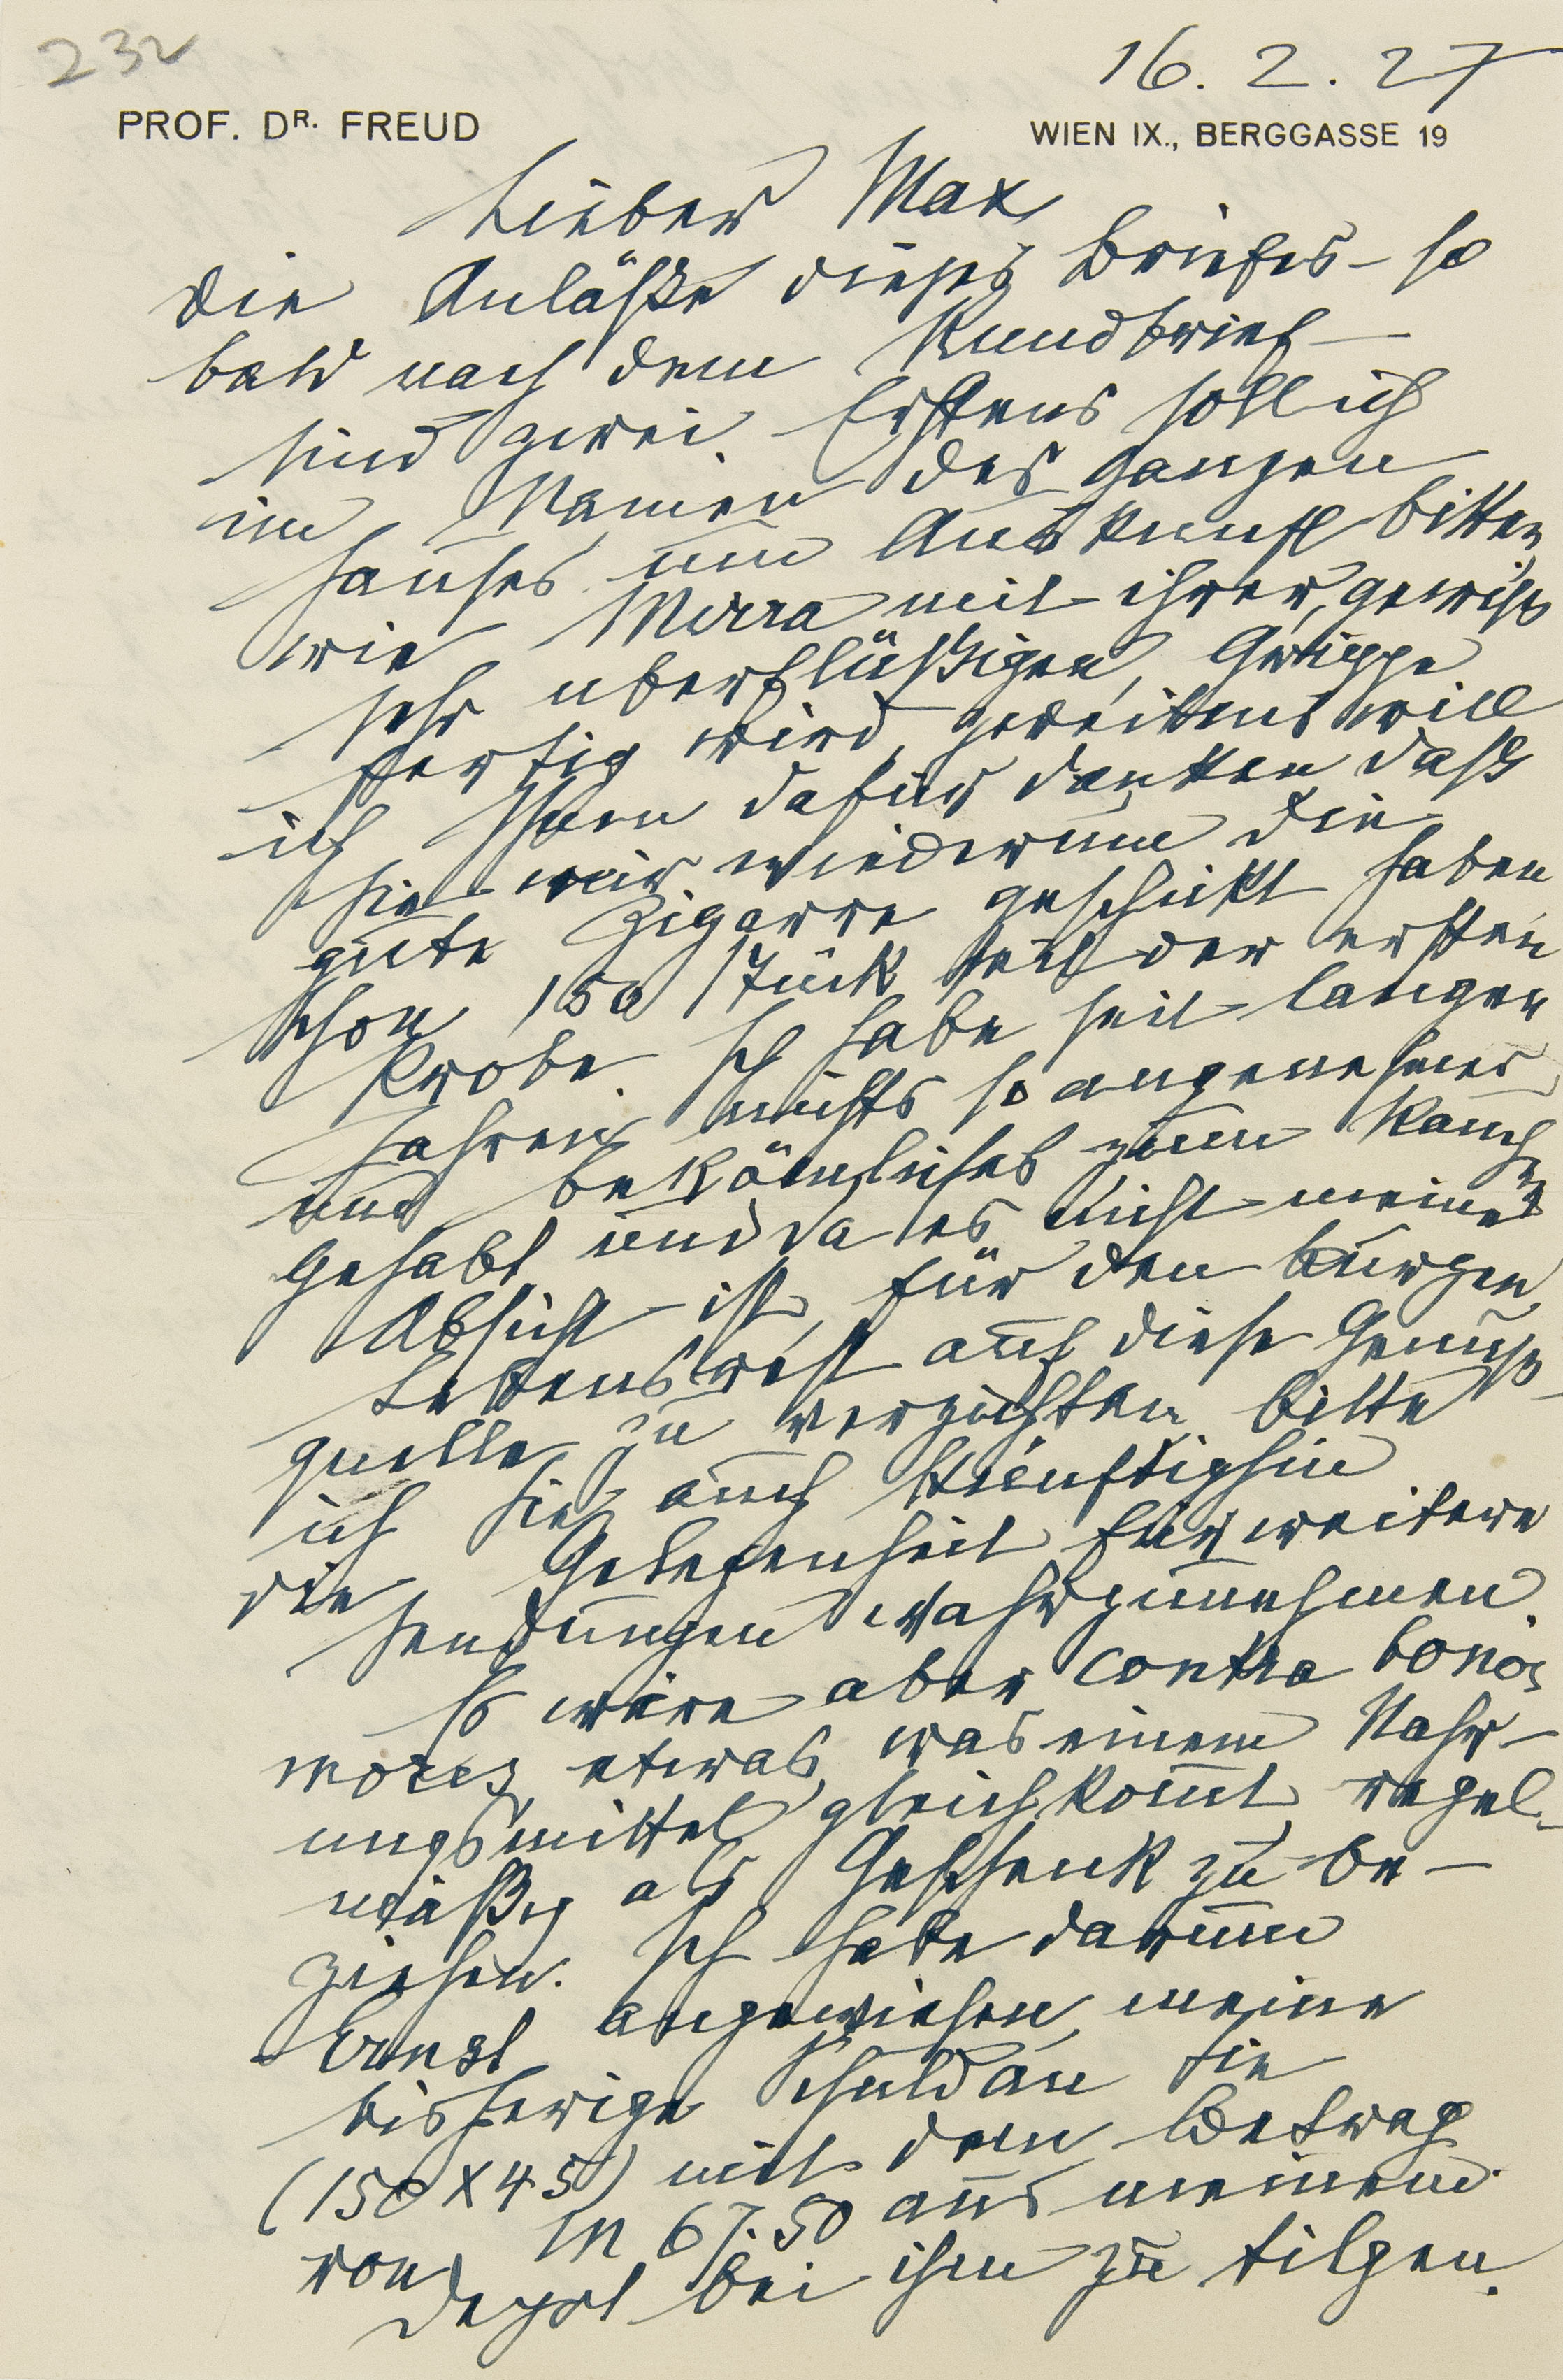 232
16. 2. 27
PROF. DR. FREUD
WIEN IX., BERGGASSE 19
Lieber Max
Die Anläße dieses Briefes – so
bald nach dem Rundbrief –
sind zwei. Erstens soll ich
im Namen des ganzen
Hauses um Auskunft bitten,
wie Mirra mit ihrer, gewiß
sehr überflüßigen, Grippe
fertig wird, zweitens will
ich Ihnen dafür danken daß
Sie mir wiederum die
gute Zigarre geschickt haben
schon 150 Stück seit der ersten
Probe. Ich habe seit langen
Jahren nichts so angenehmes
und bekömmliches zum Rauchen
gehabt und da es nicht meine
Absicht ist, für den kurzen
Lebensrest auf diese Genuß-
quelle zu verzichten bitte
ich Sie auch künftighin
die Gelegenheit für weitere
Sendungen wahrzunehmen.
Es wäre aber contra bonos
mores, etwas, was einem Nahr-
ungsmittel gleichkommt regel-
mäßig als Geschenk zu be-
ziehen. Ich habe darum
Ernst angewiesen, meine
bisherige Schuld an Sie
(150 X 45) mit dem Betrag
von M 67.50 aus meinem
Depot bei ihm zu tilgen.